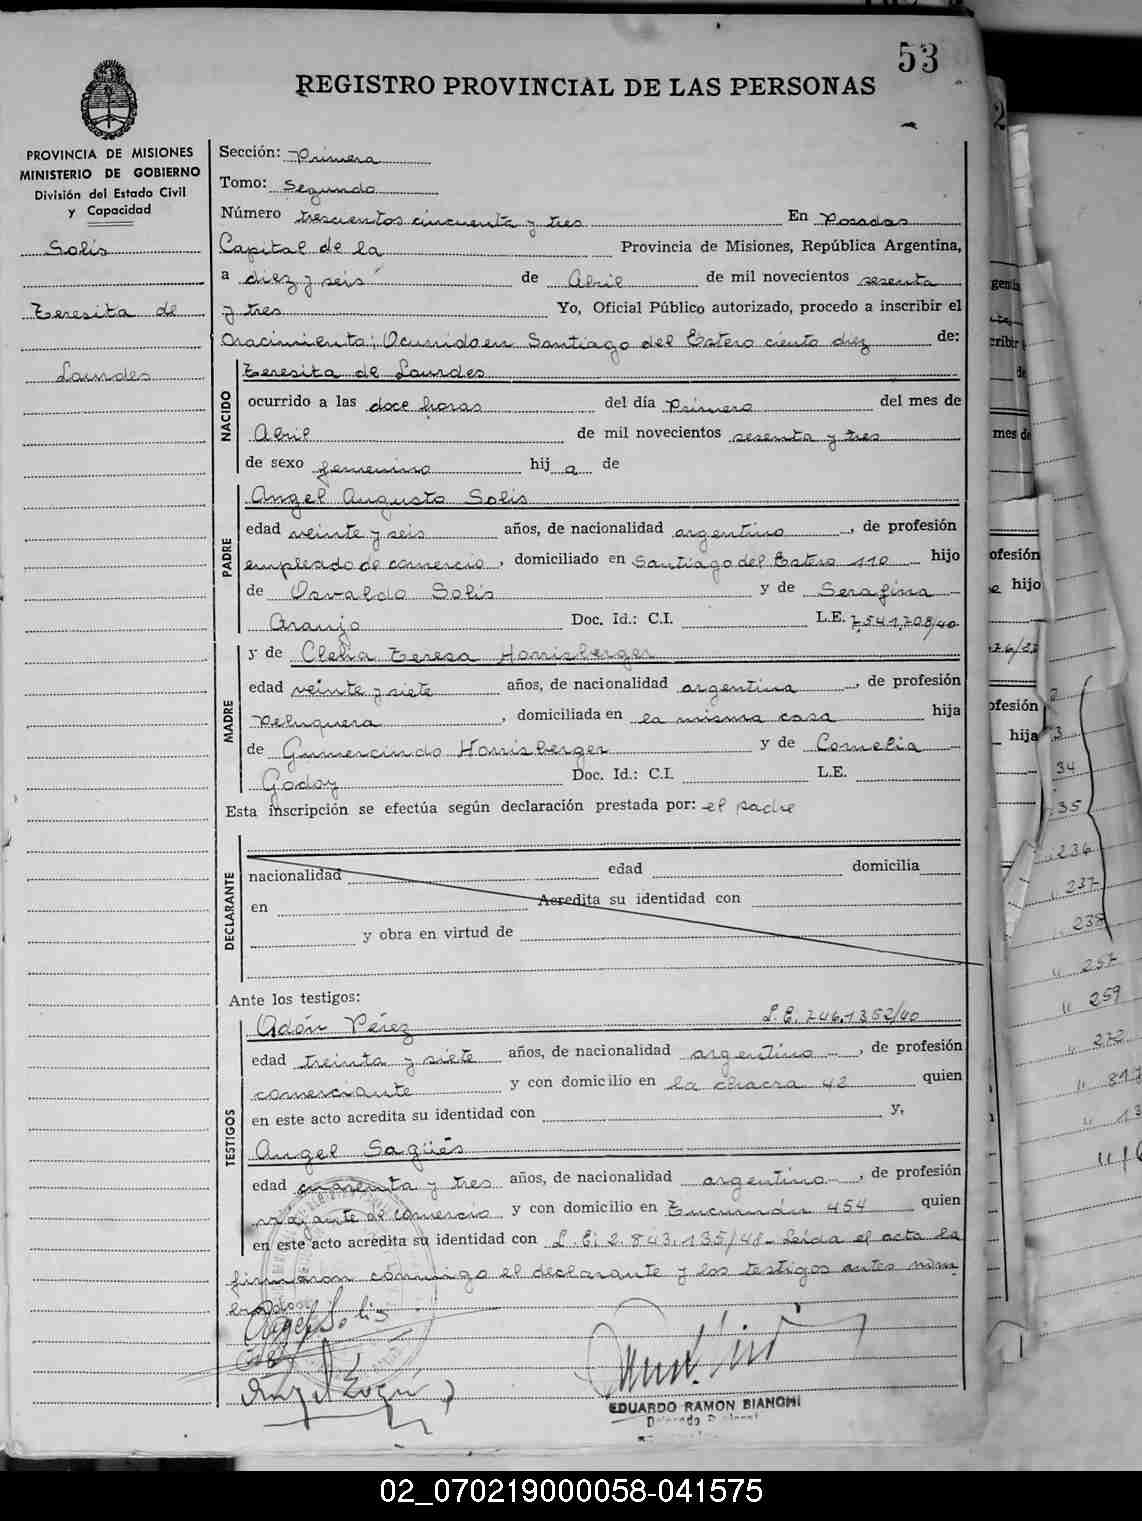 53
REGISTRO PROVINCIAL DE LAS PERSONAS
PROVINCIA DE MISIONES
MINISTERIO DE GOBIERNO
División del Estado Civil
y Capacidad
Solis
Teresita de
Lourdes
Sección: Primera
Tomo: Segundo
Número trescientos cincuenta y tres En Posadas
Capital de la Provincia de Misiones, República Argentina,
a diez y seis de Abril de mil novecientos sesenta
y tres Yo, Oficial Público autorizado, procedo a inscribir el
nacimiento; Ocurrido en Santiago del Estero ciento diez de:
NACIDO
Teresita de Lourdes
ocurrido a las doce horas del día Primero del mes de
Abril de mil novecientos sesenta y tres
de sexo femenino hij a de
PADRE
Angel Augusto Solis
edad veinte y seis años, de nacionalidad argentino, de profesión
empleado de comercio, domiciliado en Santiago del Estero 110 hijo
de Osvaldo Solis y de Serafina
Araujo Doc. Id.: C.I. L.E. 7,541,708/40
MADRE
y de Clelia Teresa Horrisberger
edad veinte y siete años, de nacionalidad argentina, de profesión
Peluquera, domiciliada en la misma casa hija
de Gumercindo Horrisberger y de Cornelia
Godoy Doc. Id.: C.I. L.E.
Esta inscripción se efectúa según declaración prestada por: el padre
DECLARANTE
nacionalidad edad domicilia
en Acredita su identidad con
y obra en virtud de
Ante los testigos:
TESTIGOS
Adón Pérez L.E. 746.1352/40
edad treinta y siete años, de nacionalidad argentino, de profesión
comerciante y con domicilio en la chacra 42 quien
en este acto acredita su identidad con y,
Angel Sagüés
edad cuarenta y tres años, de nacionalidad argentino, de profesión
viajante de comercio y con domicilio en Tucumán 454 quien
en este acto acredita su identidad con L.E. 2.843.135/48- Leida el acta la
firmaron conmigo el declarante y los testigos antes nom
brados
Angel Solis
EDUARDO RAMON BIANCHI
236
237
238
257
259
02_070219000058-041575